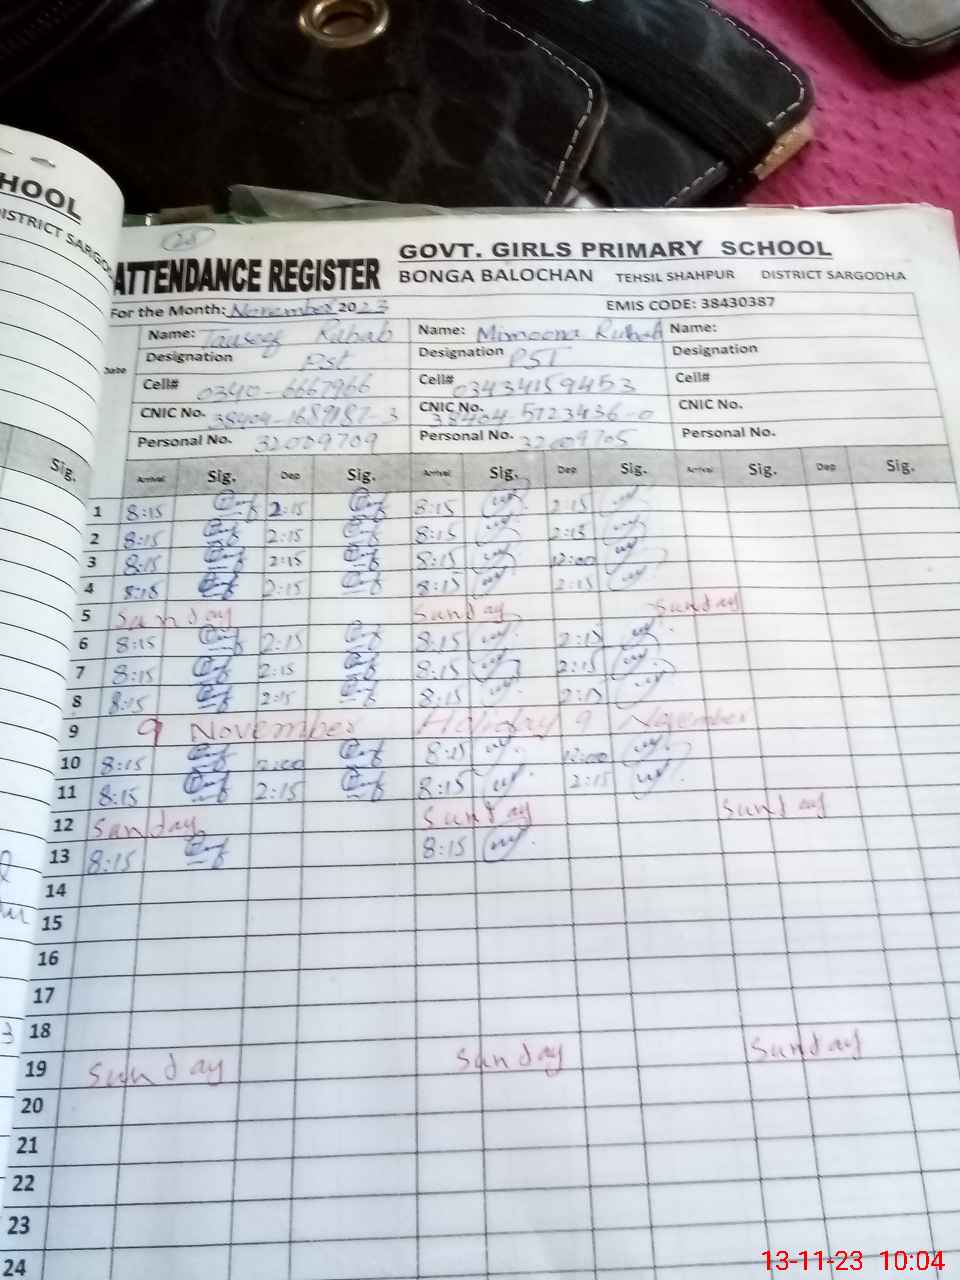 HOOL
DISTRICT SARGO
Sig.
28
ATTENDANCE REGISTER
GOVT. GIRLS PRIMARY SCHOOL
BONGA BALOCHAN TEHSIL SHAHPUR DISTRICT SARGODHA
For the Month: November 2023 EMIS CODE: 38430387
Date
Name: Tauseef Rubab Name: Mimoona Rubab Name:
Designation Pst Designation PST Designation
Cell# 0340-6667966 Cell# 03434159453 Cell#
CNIC No. 38404-1689187-3 CNIC No. 38404-5723436-0 CNIC No.
Personal No. 32009709 Personal No. 32009705 Personal No.
Arrival Sig. Dep Sig. Arrival Sig. Dep Sig. Arrival Sig. Dep Sig.
1 8:15 2:15 8:15 2:15
2 8:15 2:15 8:15 2:15
3 8:15 2:15 8:15 12:00
4 8:15 2:15 8:15 2:15
5 Sunday Sunday Sunday
6 8:15 2:15 8:15 2:15
7 8:15 2:15 8:15 2:15
8 8:15 2:15 8:15 2:15
9 9 November Holiday 9 November
10 8:15 8:15 12:00
11 8:15 2:15 8:15 2:15
12 Sunday Sunday Sunday
13 8:15 8:15
14
15
16
17
18
19 Sunday Sunday Sunday
20
21
22
23
24
13-11-23 10:04